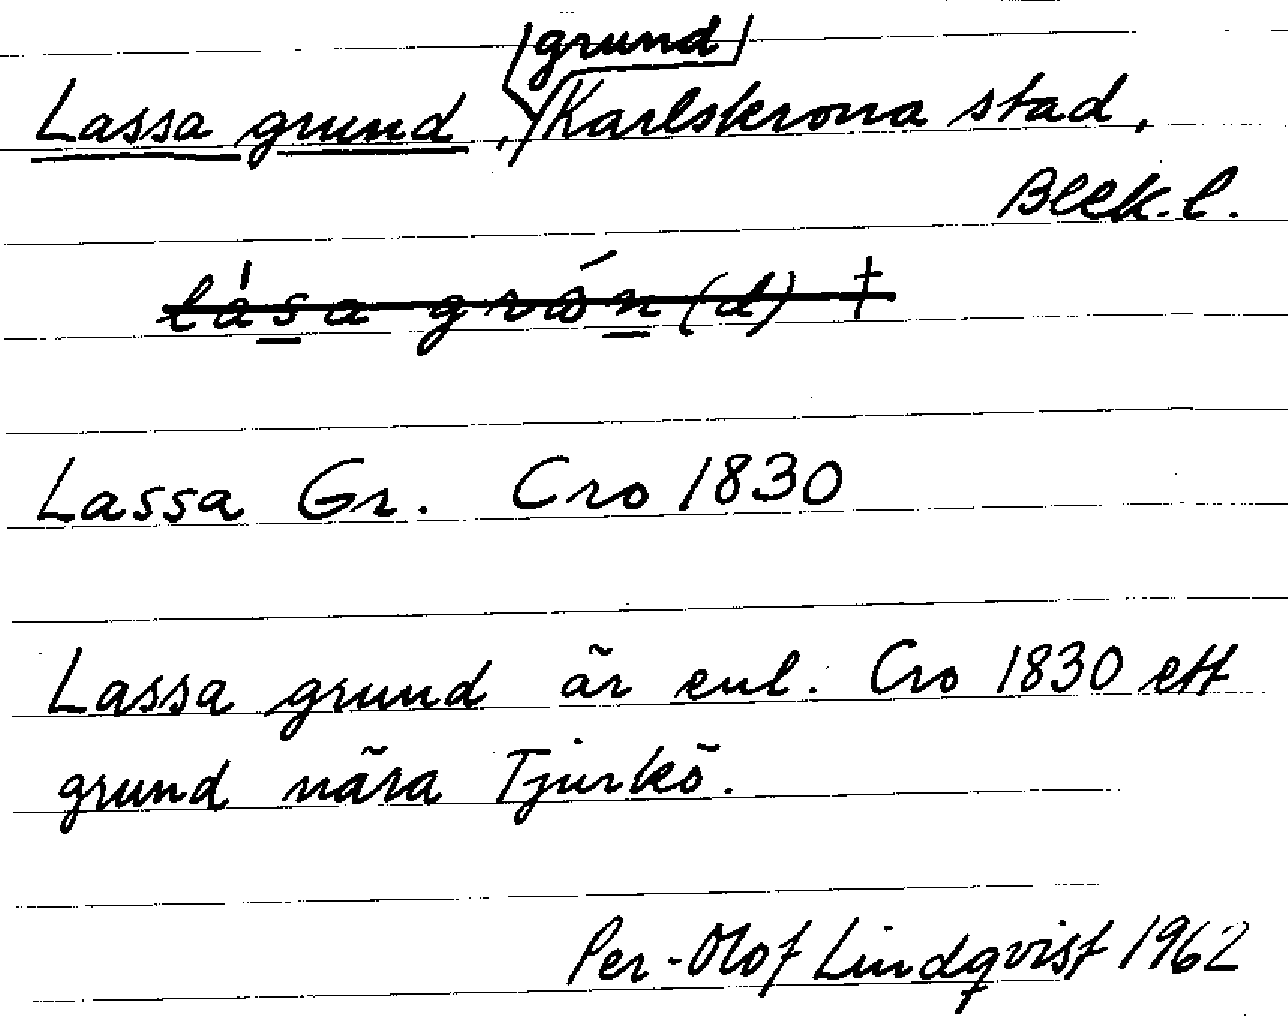 Lassa grund, grund Karlskrona stad,
Blek.l.
lása grón(d) †
Lassa Gr. Cro 1830
Lassa grund är enl. Cro 1830 ett
grund nära Tjurkö.
Per-Olof Lindqvist 1962